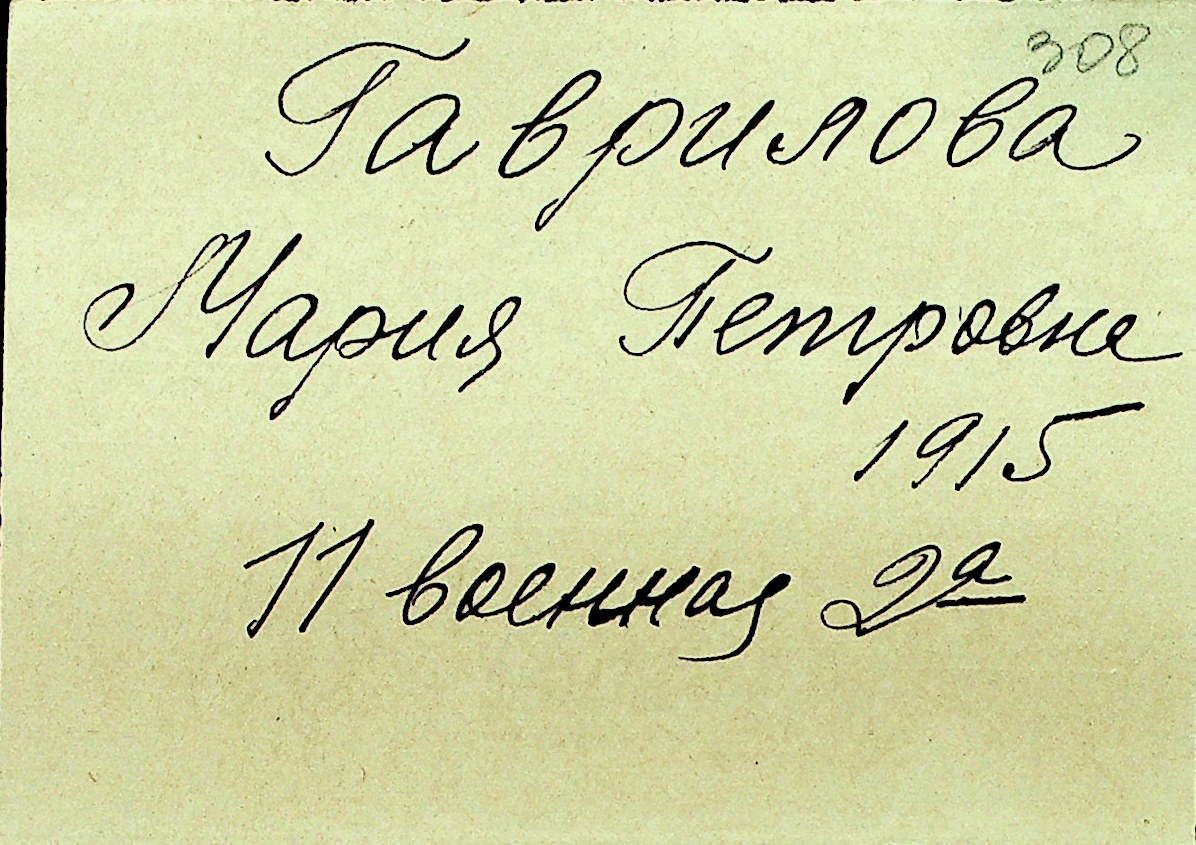 308
Гаврилова
Мария Петровна
1915
11 военная 2а